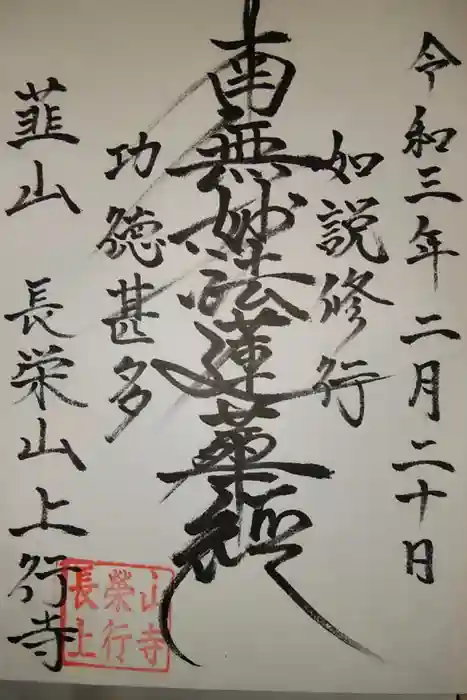 令和三年二月二十日
如説修行
南無妙法蓮華経
功徳甚多
韮山 長栄山上行寺
長榮山
上行寺